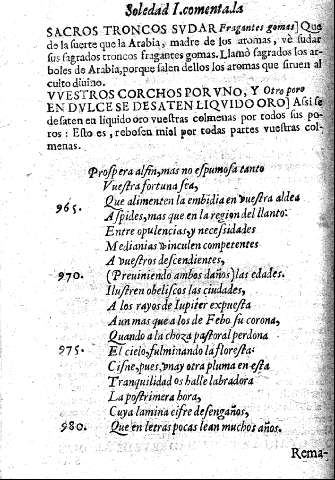 Soledad I. comenta.la
SACROS TRONCOS SVDAR Fragantes gomas] Que
de la suerte que la Arabia, madre de los aromas, vè sudar
sus sagrados troncos fragantes gomas. Llamò sagrados los ar-
boles de Arabia, porque salen dellos los aromas que siruen al
culto diuino.
VVESTROS CORCHOS POR VNO, Y Otro poro
EN DVLCE SE DESATEN LIQVIDO ORO] Assi se
desaten en liquido oro vuestras colmenas por todos sus po-
ros: Esto es, rebosen miel por todas partes vuestras col-
menas.
Prospera al fin, mas no espumosa tanto
Vuestra fortuna sea,
Que alimenten la embidia en vuestra aldea
965. Aspides, mas que en la region del llanto:
Entre opulencias, y necessidades
Medianias vinculen competentes
A vuestros descendientes,
970. (Preuiniendo ambos daños) las edades.
Ilustren obeliscos las ciudades,
A los rayos de Iupiter expuesta
Aun mas que a los de Febo su corona,
Quando a la choza pastoral perdona
975. El cielo, fulminando la floresta:
Cisne, pues, vnay otra pluma en esta
Tranquilidad os halle labradora
La postrimera hora,
Cuya lamina cifre desengaños,
980. Que en letras pocas lean muchos años.
Rema-